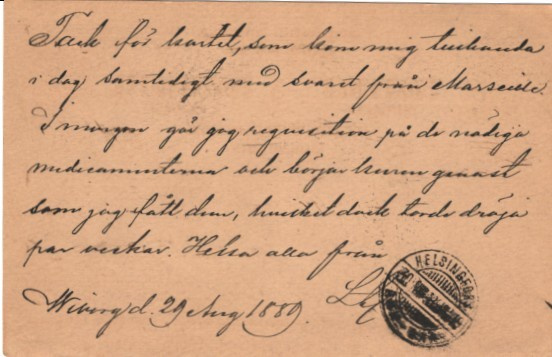 Tack för kortet, som kom mig tillhanda
i dag samtidigt med svaret från Marseille.
I morgon gör jag requisition på de nödiga
medicamenterna och börjar kuren genast
som jag fått dem, hvilket dock torde dröja
par veckor. Helsa alla från
Wiborg d. 29 Aug 1889.
HELSINGFORS